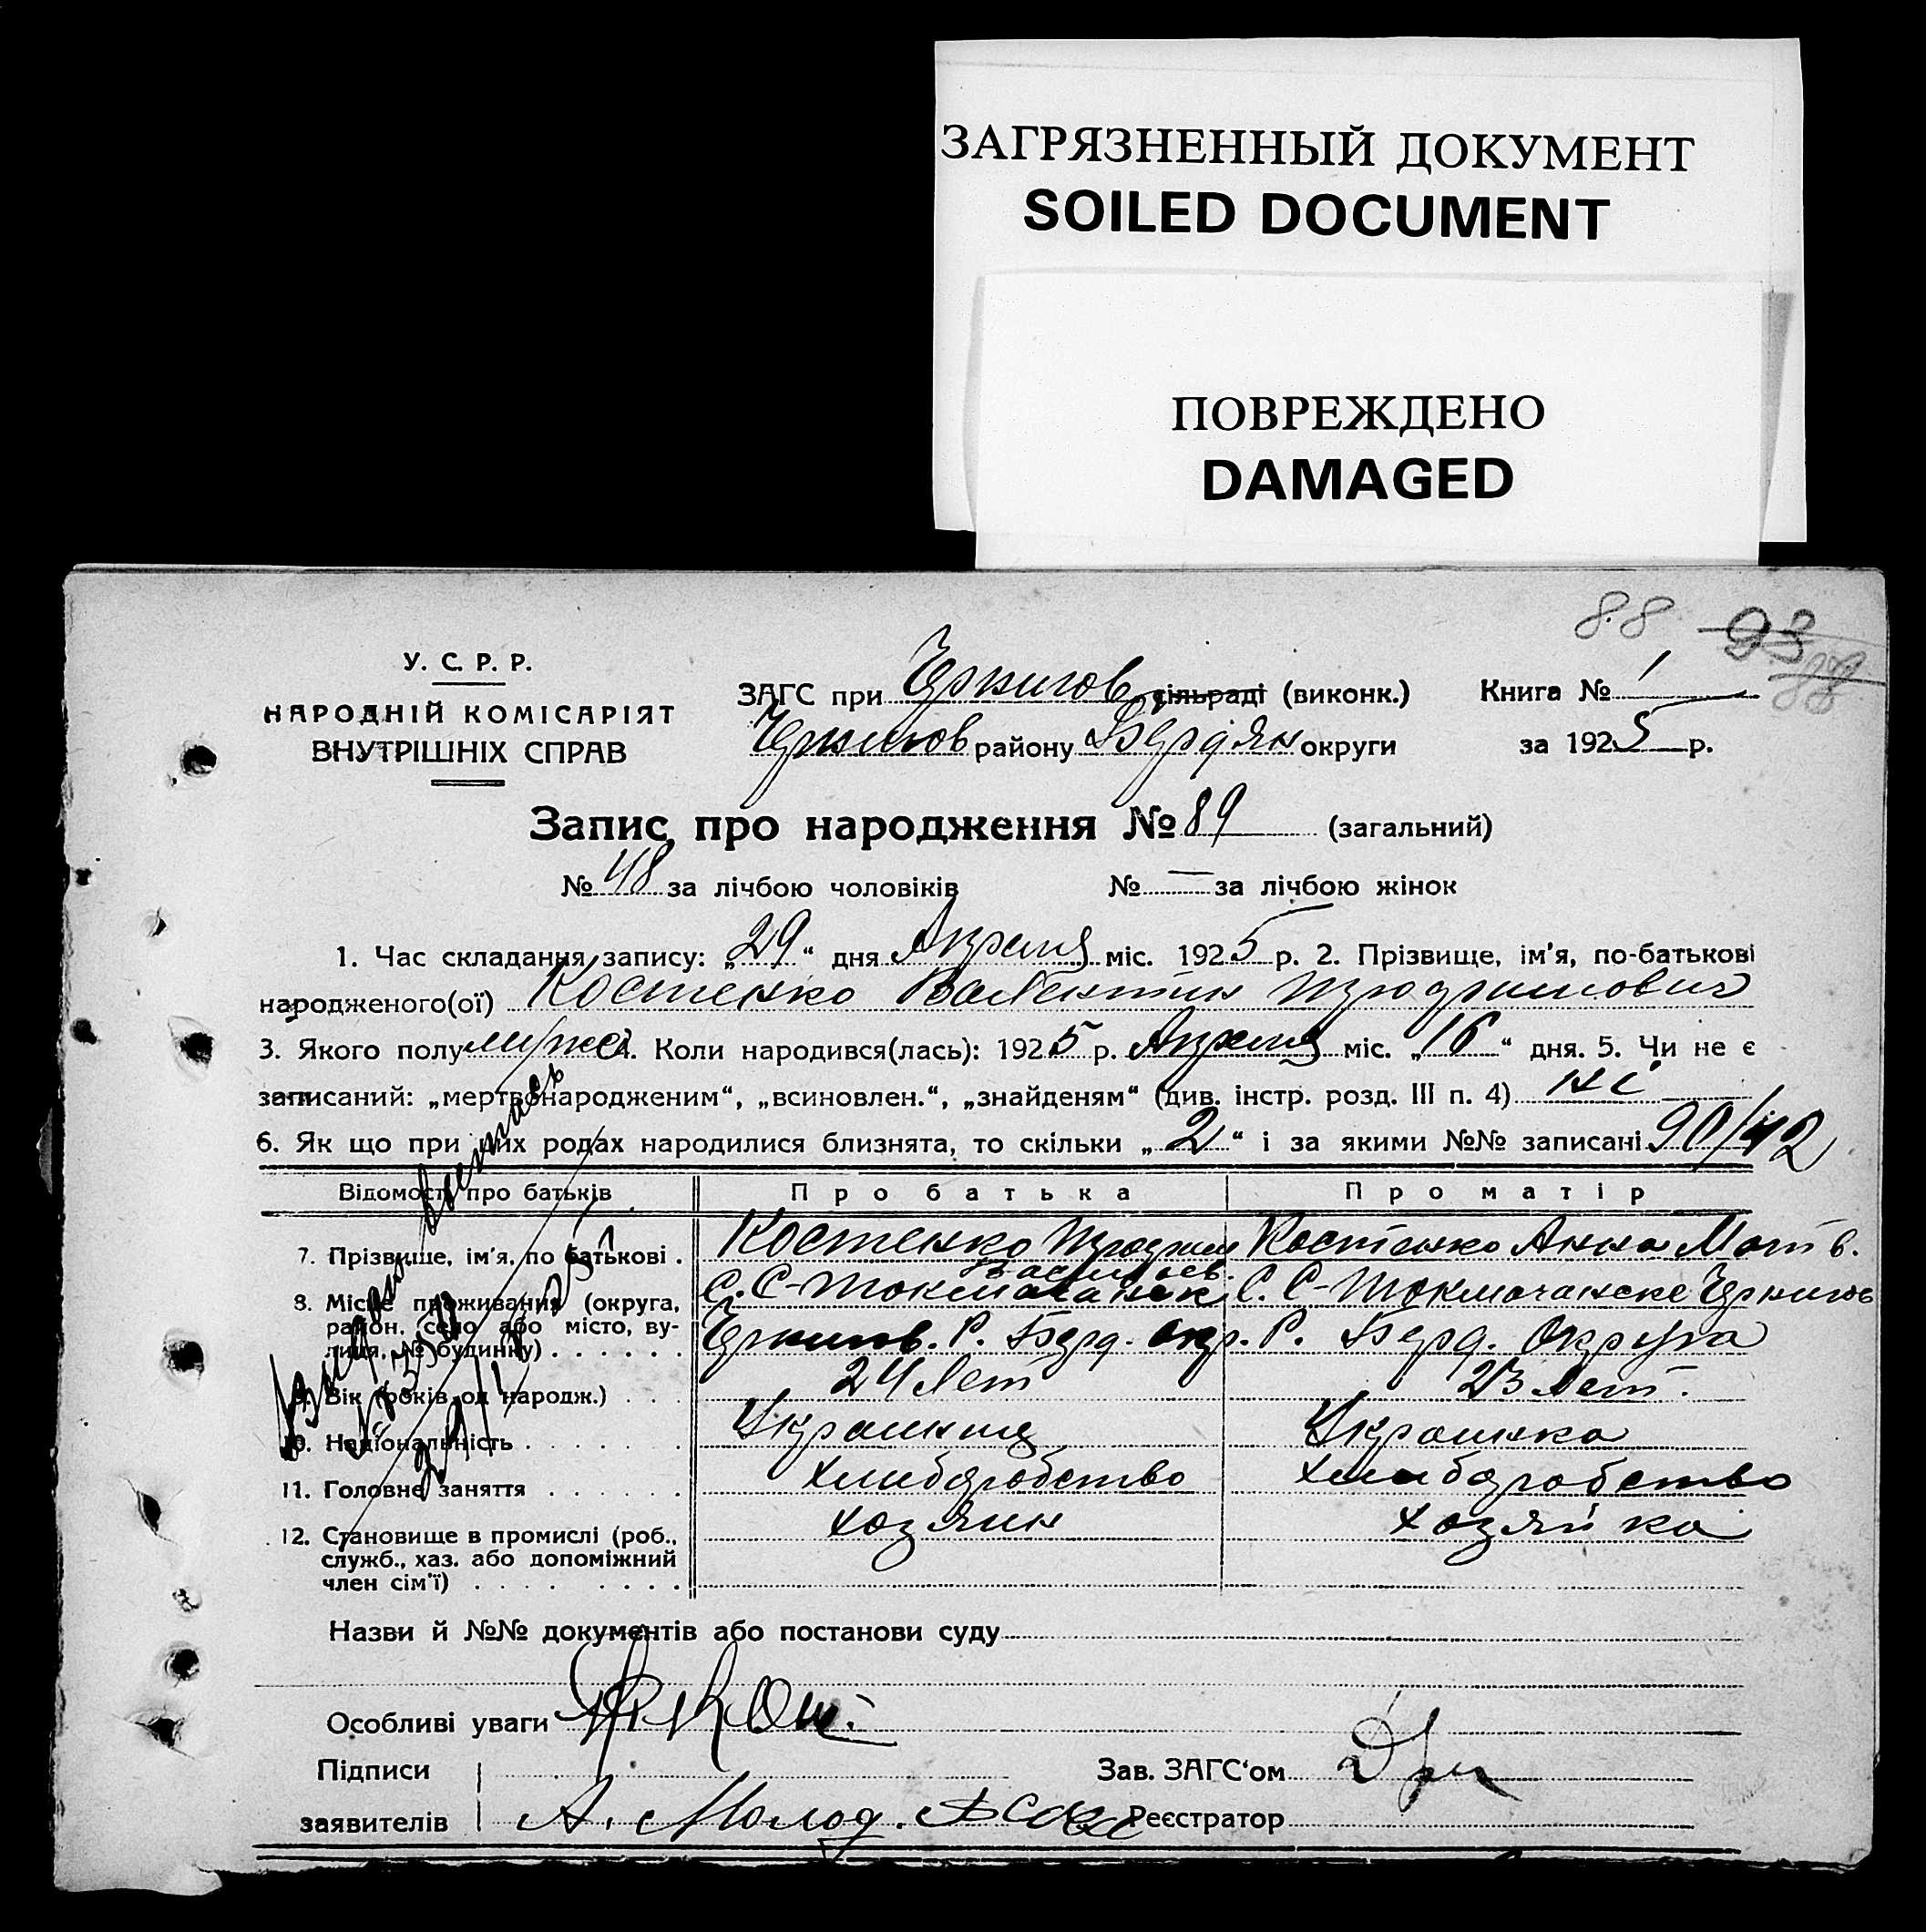 ЗАГРЯЗНЕННЫЙ ДОКУМЕНТ
SOILED DOCUMENT
ПОВРЕЖДЕНО
DAMAGED
88 93 88
У. С. Р. Р.
НАРОДНІЙ КОМІСАРІЯТ
ВНУТРІШНІХ СПРАВ
ЗАГС при Чернигов. сільраді (виконк.) Книга № 1
Чернигов району Бердян округи за 1925 р.
Запис про народження № 89 (загальний)
№ 48 за лічбою чоловіків № — за лічбою жінок
1. Час складання запису: „29“ дня Апреля міс. 1925 р. 2. Прізвище, ім'я, по-батькові
народженого(ої) Костенко Валентин
3. Якого полу муже 4. Коли народився(лась): 1925 р. Апреля міс. „16“ дня. 5. Чи не є
записаний: „мертвонародженим“, „всиновлен.“, „знайденям“ (див. інстр. розд. III п. 4) ні
6. Як що при цих родах народилися близнята, то скільки „2“ і за якими №№ записані 90/42
Відомості про батьків Про батька Про матір
7. Прізвище, ім'я, по батькові . Костенко Костенко Анна Матв.
Васильев.
8. Місце проживання (округа, район, село або місто, вулиця, № будинку) . . . . . .
С. С-Токмачанск С. С-Токмачанске Чернигов
Чернигов. Р. Берд. окр. Р. Берд. Округа
9. Вік (років од народж.) . . . 24 лет 23 лет.
10. Національність . . . . . . . Украинец Украинка
11. Головне заняття . . . . . . хлиборобство хлиборобство
12. Становище в промислі (роб., хозяин хозяйка
служб., хаз. або допоміжний
член сім'ї) . . . . . . . .
Назви й №№ документів або постанови суду
Особливі уваги
Підписи Зав. ЗАГС'ом
заявителів А. Молод. Реєстратор